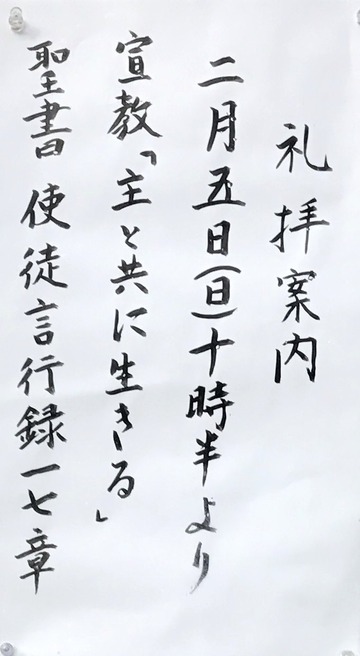 礼拝案内
二月五日(日)十時半より
宣教「主と共に生きる」
聖書 使徒言行録一七章